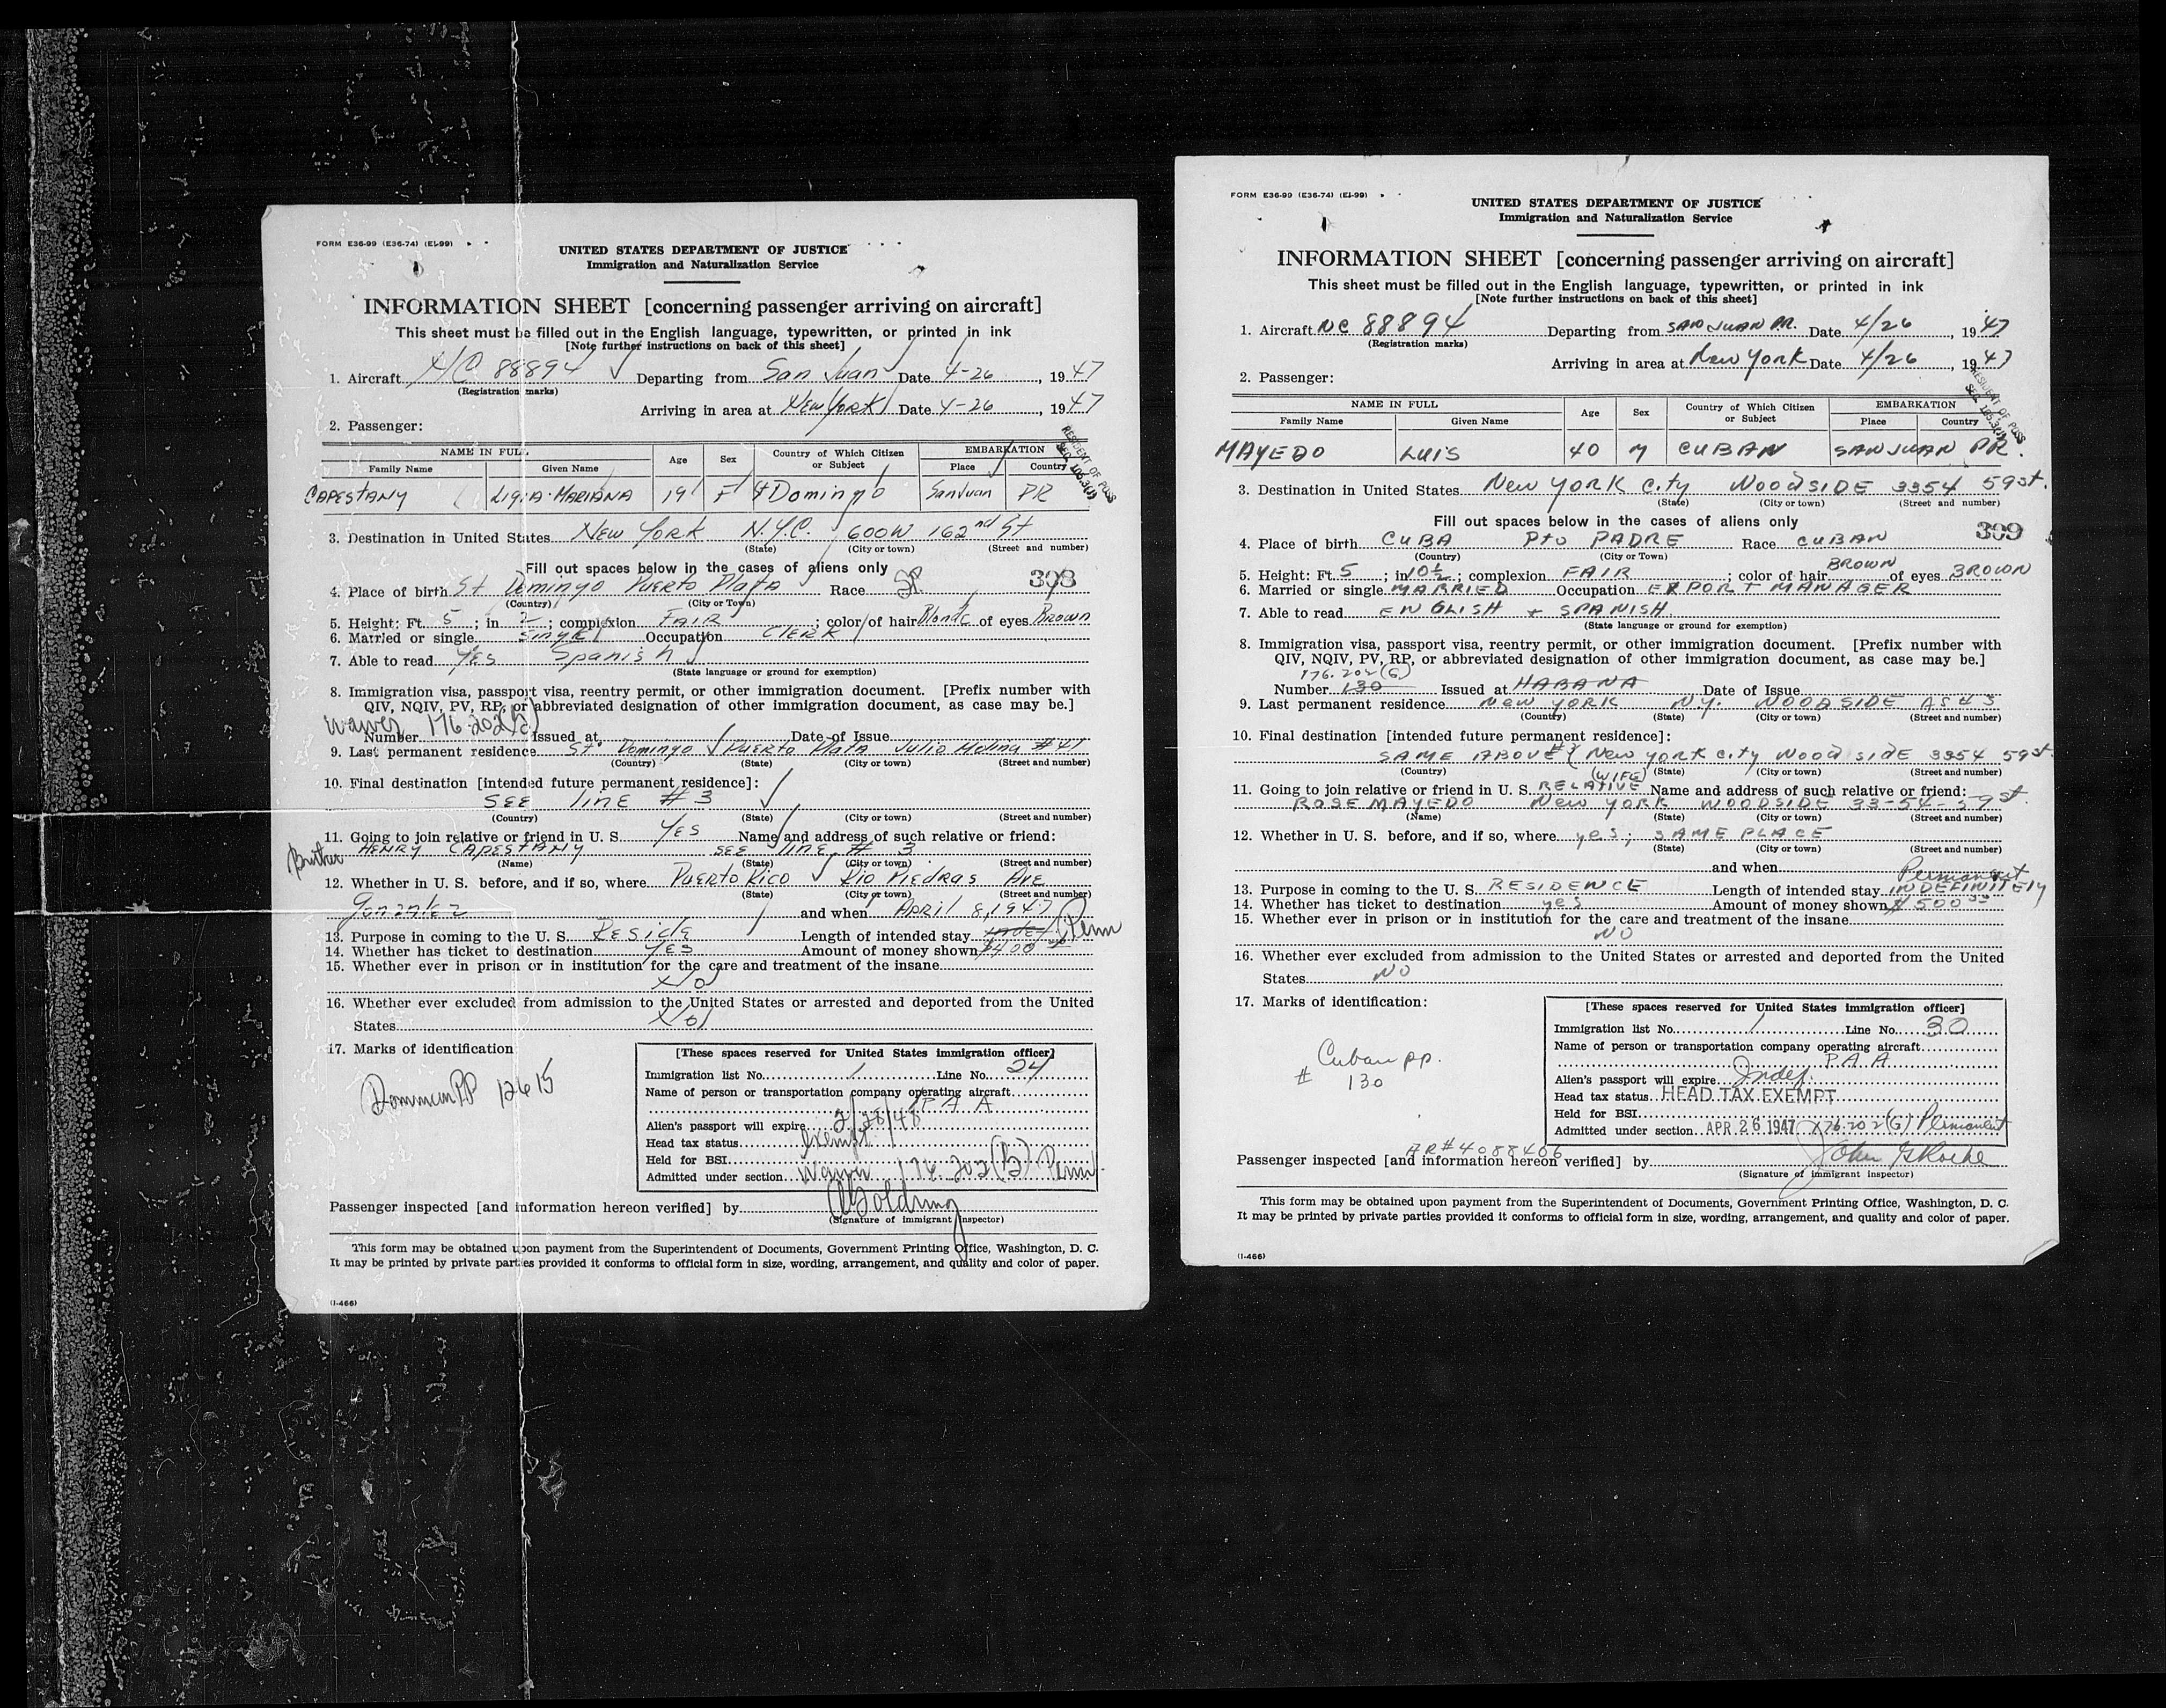 FORM E36-99 (E36-74) (EI-99)
UNITED STATES DEPARTMENT OF JUSTICE
Immigration and Naturalization Service
INFORMATION SHEET [concerning passenger arriving on aircraft]
This sheet must be filled out in the English language, typewritten, or printed in ink
[Note further instructions on back of this sheet]
1. Aircraft NC 88894 Departing from San Juan Date 4-26, 1947
(Registration marks)
Arriving in area at New York Date 4-26, 1947
2. Passenger:
RESIDENT OF POSS
SEC. 105.3(J)
NAME IN FULL Age Sex Country of Which Citizen or Subject EMBARKATION
Family Name Given Name Place Country
CAPESTANY LIGIA-MARIANA 19 F St Domingo San Juan PR
3. Destination in United States New York N.Y.C. 600W 162nd St
(State) (City or town) (Street and number)
Fill out spaces below in the cases of aliens only
308
4. Place of birth St Domingo Puerto Plata Race SP.
(Country) (City or Town)
5. Height: Ft. 5; in 2; complexion FAIR; color of hair Blonde of eyes Brown
6. Married or single Single Occupation CLERK
7. Able to read Yes Spanish
(State language or ground for exemption)
8. Immigration visa, passport visa, reentry permit, or other immigration document. [Prefix number with
QIV, NQIV, PV, RP, or abbreviated designation of other immigration document, as case may be.]
Waiver 176-202
Number Issued at Date of Issue
9. Last permanent residence St. Domingo Puerto Plata Julio Molina #41
(Country) (State) (City or town) (Street and number)
10. Final destination [intended future permanent residence]:
SEE line #3
(Country) (State) (City or town) (Street and number)
11. Going to join relative or friend in U. S. Yes Name and address of such relative or friend:
Brother HENRY CAPESTANY SEE line # 3
(Name) (State) (City or town) (Street and number)
12. Whether in U. S. before, and if so, where Puerto Rico Rio Piedras Ave
(State) (City or town) (Street and number)
Gonzalez and when APRIL 8, 1947
13. Purpose in coming to the U. S. Reside Length of intended stay Indef Perm
14. Whether has ticket to destination Yes Amount of money shown $400
15. Whether ever in prison or in institution for the care and treatment of the insane
No
16. Whether ever excluded from admission to the United States or arrested and deported from the United
States No
17. Marks of identification:
PP 12615
[These spaces reserved for United States immigration officer]
Immigration list No. 1 Line No. 24
Name of person or transportation company operating aircraft
P A A
Alien's passport will expire 2/28/48
Head tax status exempt
Held for BSI
Admitted under section Waiver 176.202 Perm.
Passenger inspected [and information hereon verified] by Golding
(Signature of immigrant inspector)
This form may be obtained upon payment from the Superintendent of Documents, Government Printing Office, Washington, D. C.
It may be printed by private parties provided it conforms to official form in size, wording, arrangement, and quality and color of paper.
(I-466)
FORM E36-99 (E36-74) (EI-99)
UNITED STATES DEPARTMENT OF JUSTICE
Immigration and Naturalization Service
INFORMATION SHEET [concerning passenger arriving on aircraft]
This sheet must be filled out in the English language, typewritten, or printed in ink
[Note further instructions on back of this sheet]
1. Aircraft NC 88894 Departing from SAN JUAN PR. Date 4/26, 1947
(Registration marks)
Arriving in area at New York Date 4/26, 1947
2. Passenger:
RESIDENT OF POSS
SEC. 105.3(J)
NAME IN FULL Age Sex Country of Which Citizen or Subject EMBARKATION
Family Name Given Name Place Country
MAYEDO LUIS 40 M CUBAN SAN JUAN PR.
3. Destination in United States New York City WOODSIDE 3354 59 st.
(State) (City or town) (Street and number)
Fill out spaces below in the cases of aliens only
309
4. Place of birth CUBA Pto PADRE Race CUBAN
(Country) (City or Town)
5. Height: Ft. 5; in 10½; complexion FAIR; color of hair BROWN of eyes BROWN
6. Married or single MARRIED Occupation EXPORT MANAGER
7. Able to read ENGLISH + SPANISH
(State language or ground for exemption)
8. Immigration visa, passport visa, reentry permit, or other immigration document. [Prefix number with
QIV, NQIV, PV, RP, or abbreviated designation of other immigration document, as case may be.]
176.202(G)
Number 130 Issued at HABANA Date of Issue
9. Last permanent residence New York N.Y. WOODSIDE AS # 3
(Country) (State) (City or town) (Street and number)
10. Final destination [intended future permanent residence]:
SAME ABOVE #3 (New York City Wood side 3354 59 st.
(Country) (State) (City or town) (Street and number)
(WIFE)
11. Going to join relative or friend in U. S. RELATIVE Name and address of such relative or friend:
ROSE MAYEDO New York WOODSIDE 33-54-59 st.
(Name) (State) (City or town) (Street and number)
12. Whether in U. S. before, and if so, where yes; SAME PLACE
(State) (City or town) (Street and number)
and when
Permanent
13. Purpose in coming to the U. S. RESIDENCE Length of intended stay INDEFINITELY
14. Whether has ticket to destination yes Amount of money shown $500
15. Whether ever in prison or in institution for the care and treatment of the insane
NO
16. Whether ever excluded from admission to the United States or arrested and deported from the United
States NO
17. Marks of identification:
Cuban pp.
# 130
[These spaces reserved for United States immigration officer]
Immigration list No. 1 Line No. 30
Name of person or transportation company operating aircraft
P. A. A
Alien's passport will expire Indef.
Head tax status HEAD TAX EXEMPT
Held for BSI
Admitted under section APR 26 1947 176.202(G) Permanent
AR#4088406
Passenger inspected [and information hereon verified] by John
(Signature of immigrant inspector)
This form may be obtained upon payment from the Superintendent of Documents, Government Printing Office, Washington, D. C.
It may be printed by private parties provided it conforms to official form in size, wording, arrangement, and quality and color of paper.
(I-466)